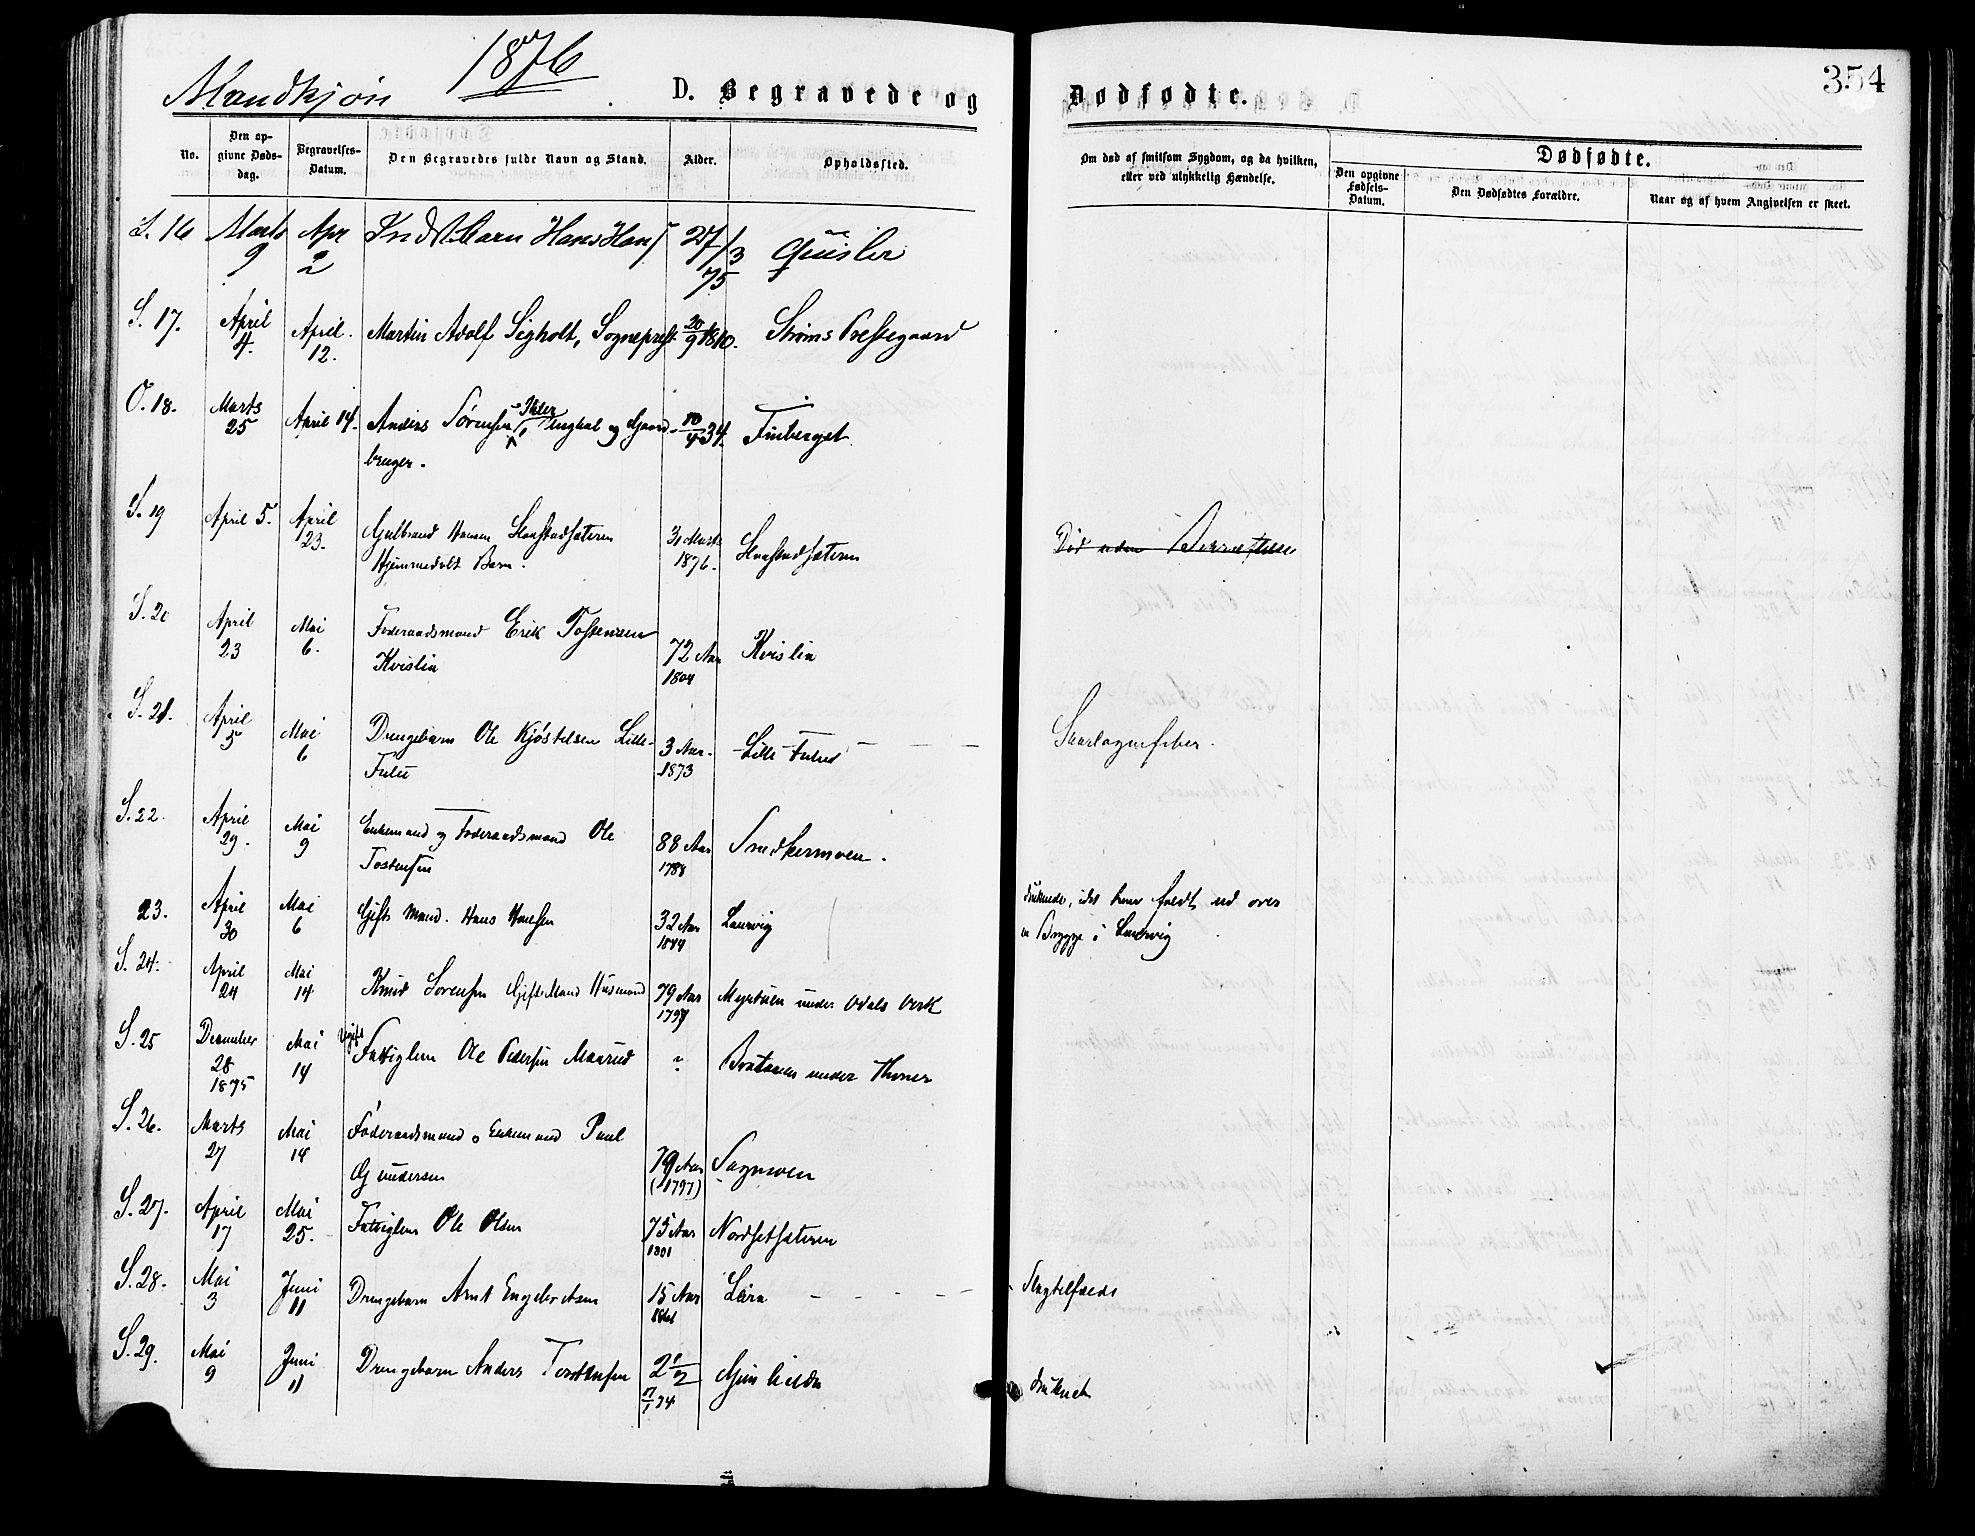 Mandkjøn 1876 D. Begravede og Dødfødte. 354
No. Den opgivne Døds-dag. Begravelses-Datum. Den Begravedes fulde Navn og Stand. Alder. Opholdssted. Om død af smitsom Sygdom, og da hvilken, eller ved ulykkelig Hændelse. Dødfødte. Den opgivne Fødsels-Datum. Den Dødfødtes Forældre. Naar og af hvem Angivelsen er skeet.
S. 16 Marts 9 Apr 2 Hans Hans 27/3 75
S. 17. April 4. April. 12. Martin Adolf Sigholt, Sogneprest 20/9 1810. Strøms Prestegaard
O. 18. Marts 25 April 14. Anders Sørensen og Gaard-
bruger. 10/4 34. Finberget
S. 19 April 5. April 23. Gulbrand Hansen Haastadsæteren
Hjemmedøbt Barn. 31 Marts 1876. Haastadsæteren Død uden
S. 20 April 23 Mai 6. Føderaadsmand Erik Tostensen
Kvislia 72 Aar 1804 Kvislia
S. 21. April 5 Mai 6 Drengebarn Ole Kjøstelsen Lille-
Fulu 3 Aar. 1873 Lille Fulu Skarlagnsfeber.
S. 22. April 29. Mai 9 Enkemand og Føderaadsmand Ole
Tostensen 88 Aar 1788 Snedkermoen.
23. April 30 Mai 6 Gift Mand. Hans Hansen 32 Aar 1844 Laurvig druknede, idet han faldt ud over
en Brygge i Laurvig
S. 24. April 24 Mai 14 Knud Sørensen Gift Mand Husmand 79 Aar 1797 Myrstuen under Odals Værk
S. 25 December 28 1875 Mai 14 Ugift Fattiglem Ole Pedersen Maarud ? Brataaen under Thoner
S. 26. Marts 27 Mai 14 Føderaadsmand o Enkemand Paul
Gundersen 79 Aar (1797) Sagmoen
S. 27. April 17 Mai 25. Fattiglem Ole Olsen 75 Aar 1801 Nordsetsæteren
S. 28. Mai 3 Juni 11 Drengebarn Arnt Engebretsen 15 Aar 1861 Slagtilfælde
S. 29. Mai 9 Juni 11 Drengebarn Anders Torstensen 2 1/2 17/1 74 druknet